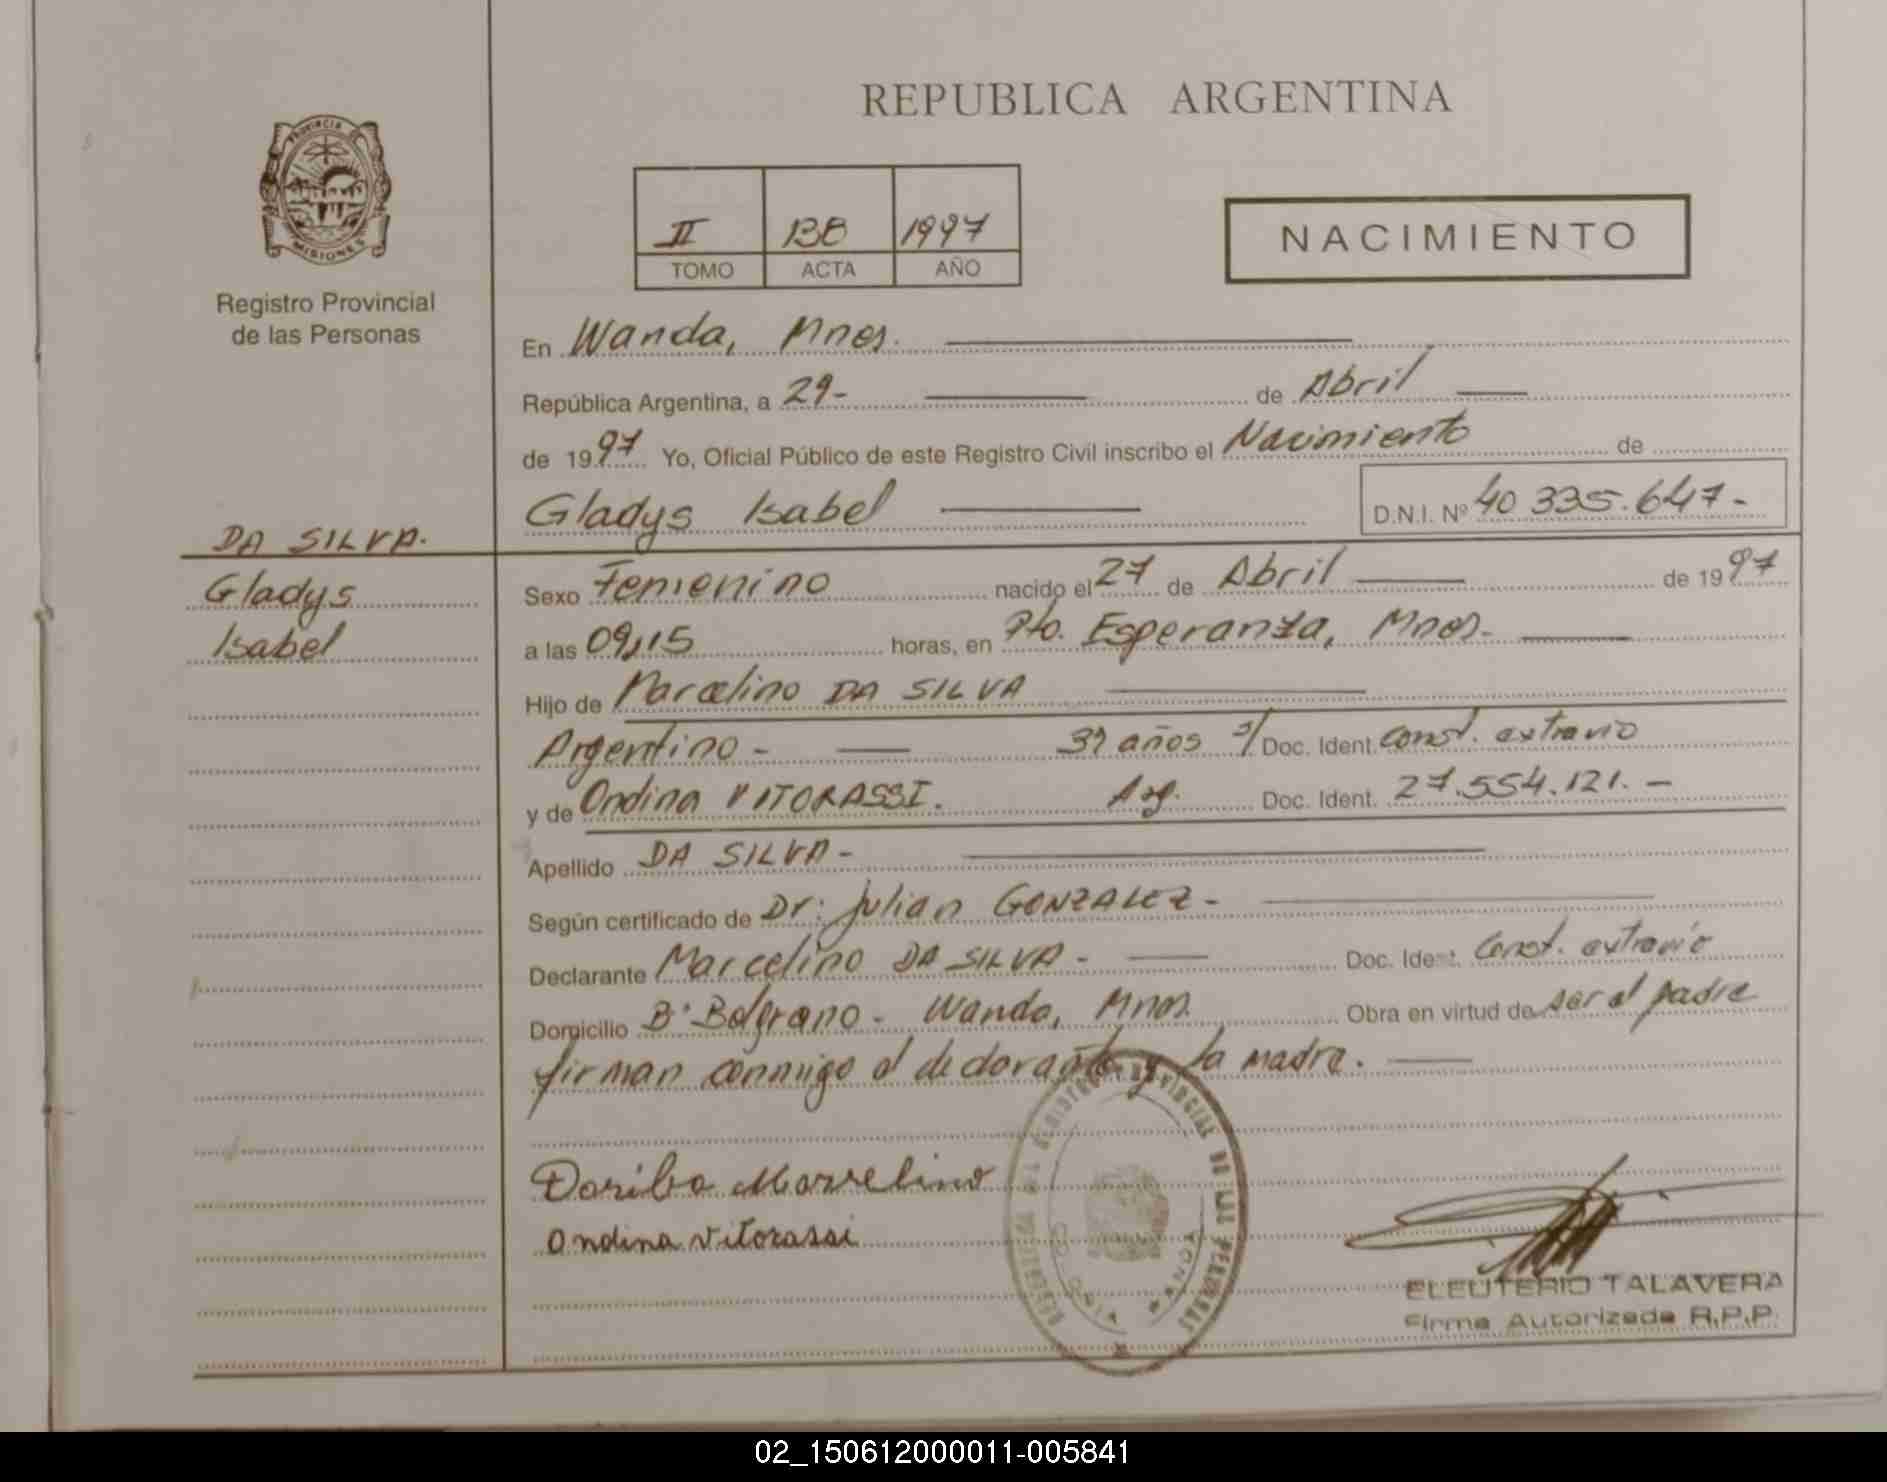 REPUBLICA ARGENTINA
PROVINCIA DE
MISIONES
Registro Provincial
de las Personas
II 138 1997
TOMO ACTA AÑO
NACIMIENTO
En Wanda, Mnes.
República Argentina, a 29- de Abril
de 1997 Yo, Oficial Público de este Registro Civil inscribo el Nacimiento de
Gladys Isabel D.N.I. Nº 40 335.647-
DA SILVA.
Gladys
Isabel
Sexo Femenino nacido el 27 de Abril de 1997
a las 09,15 horas, en Pto. Esperanza, Mnes.
Hijo de Marcelino DA SILVA
Argentino - años Doc. Ident. const. extravio
y de Ondina VITORASSI. Arg. Doc. Ident. 27.554.121.-
Apellido DA SILVA-
Según certificado de Dr: Julian GONZALEZ-
Declarante Marcelino DA SILVA- Doc. Ident. Const. extravio
Domicilio Bº Belgrano - Wanda, Mnes. Obra en virtud de ser el padre
firman conmigo el declarante y la madre.
Marcelino
Ondina Vitorassi
REGISTRO PROVINCIAL DE LAS PERSONAS
WANDA
ELEUTERIO TALAVERA
Firma Autorizada R.P.P.
02_150612000011-005841